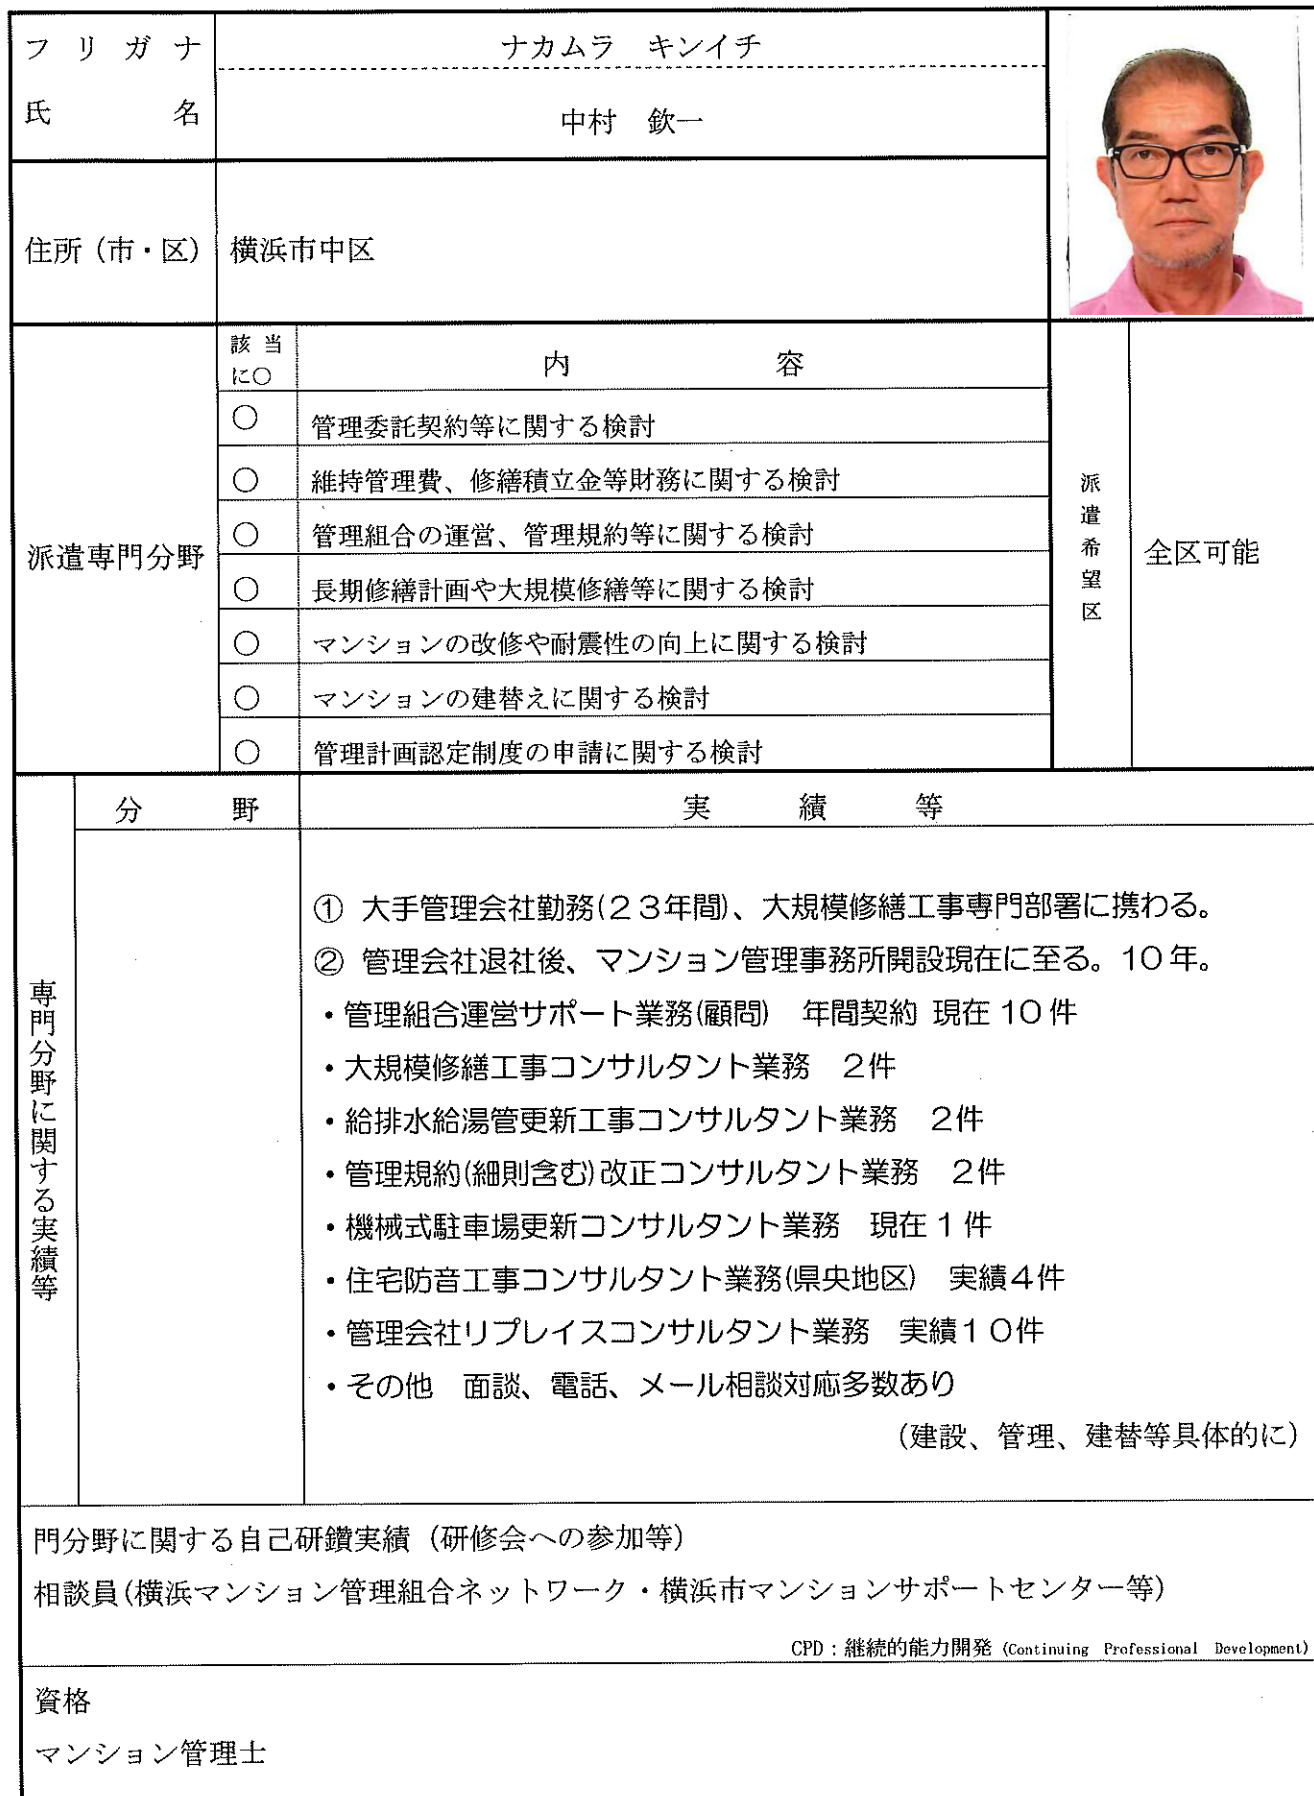 フリガナ ナカムラ キンイチ
氏名 中村 欽一
住所（市・区） 横浜市中区
派遣専門分野
該当に〇 内容
〇 管理委託契約等に関する検討
〇 維持管理費、修繕積立金等財務に関する検討
〇 管理組合の運営、管理規約等に関する検討
〇 長期修繕計画や大規模修繕等に関する検討
〇 マンションの改修や耐震性の向上に関する検討
〇 マンションの建替えに関する検討
〇 管理計画認定制度の申請に関する検討
派遣希望区 全区可能
専門分野に関する実績等
分野 実績等
① 大手管理会社勤務(２３年間)、大規模修繕工事専門部署に携わる。
② 管理会社退社後、マンション管理事務所開設現在に至る。10年。
・管理組合運営サポート業務(顧問) 年間契約 現在10件
・大規模修繕工事コンサルタント業務 2件
・給排水給湯管更新工事コンサルタント業務 2件
・管理規約(細則含む)改正コンサルタント業務 2件
・機械式駐車場更新コンサルタント業務 現在1件
・住宅防音工事コンサルタント業務(県央地区) 実績4件
・管理会社リプレイスコンサルタント業務 実績１０件
・その他 面談、電話、メール相談対応多数あり
（建設、管理、建替等具体的に）
門分野に関する自己研鑽実績（研修会への参加等）
相談員(横浜マンション管理組合ネットワーク・横浜市マンションサポートセンター等)
CPD：継続的能力開発（Continuing Professional Development）
資格
マンション管理士